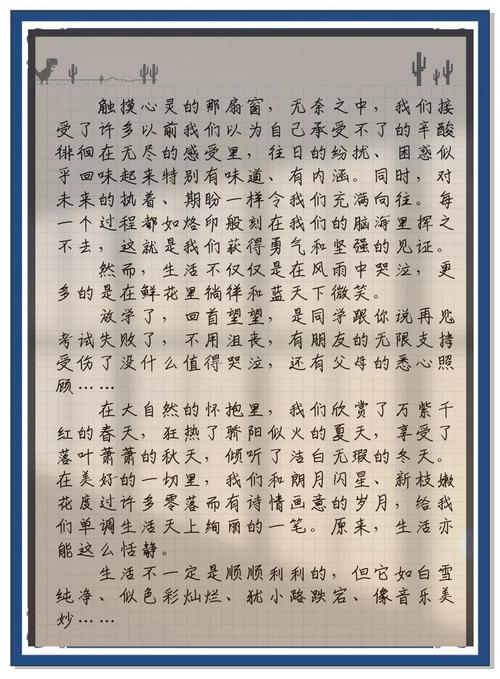 触摸心灵的那扇窗，无奈之中，我们接
受了许多以前我们以为自己承受不了的辛酸
徘徊在无尽的感受里，往日的纷扰、困惑似
乎回味起来特别有味道、有内涵。同时，对
未来的执着、期盼一样令我们充满向往。每
一个过程都如烙印般刻在我们的脑海里挥之
不去，这就是我们获得勇气和坚强的见证。
然而，生活不仅仅是在风雨中哭泣，更
多的是在鲜花里徜徉和蓝天下微笑。
放学了，回首望望，是同学跟你说再见
考试失败了，不用沮丧，有朋友的无限支持
受伤了没什么值得哭泣，还有父母的悉心照
顾……
在大自然的怀抱里，我们欣赏了万紫千
红的春天，狂热了骄阳似火的夏天，享受了
落叶萧萧的秋天，倾听了洁白无瑕的冬天。
在美好的一切里，我们和朗月闪星、新枝嫩
花度过许多零落而有诗情画意的岁月，给我
们单调生活天上绚丽的一笔。原来，生活亦
能这么恬静。
生活不一定是顺顺利利的，但它如白雪
纯净、似色彩灿烂、犹小路跌宕、像音乐美
妙……